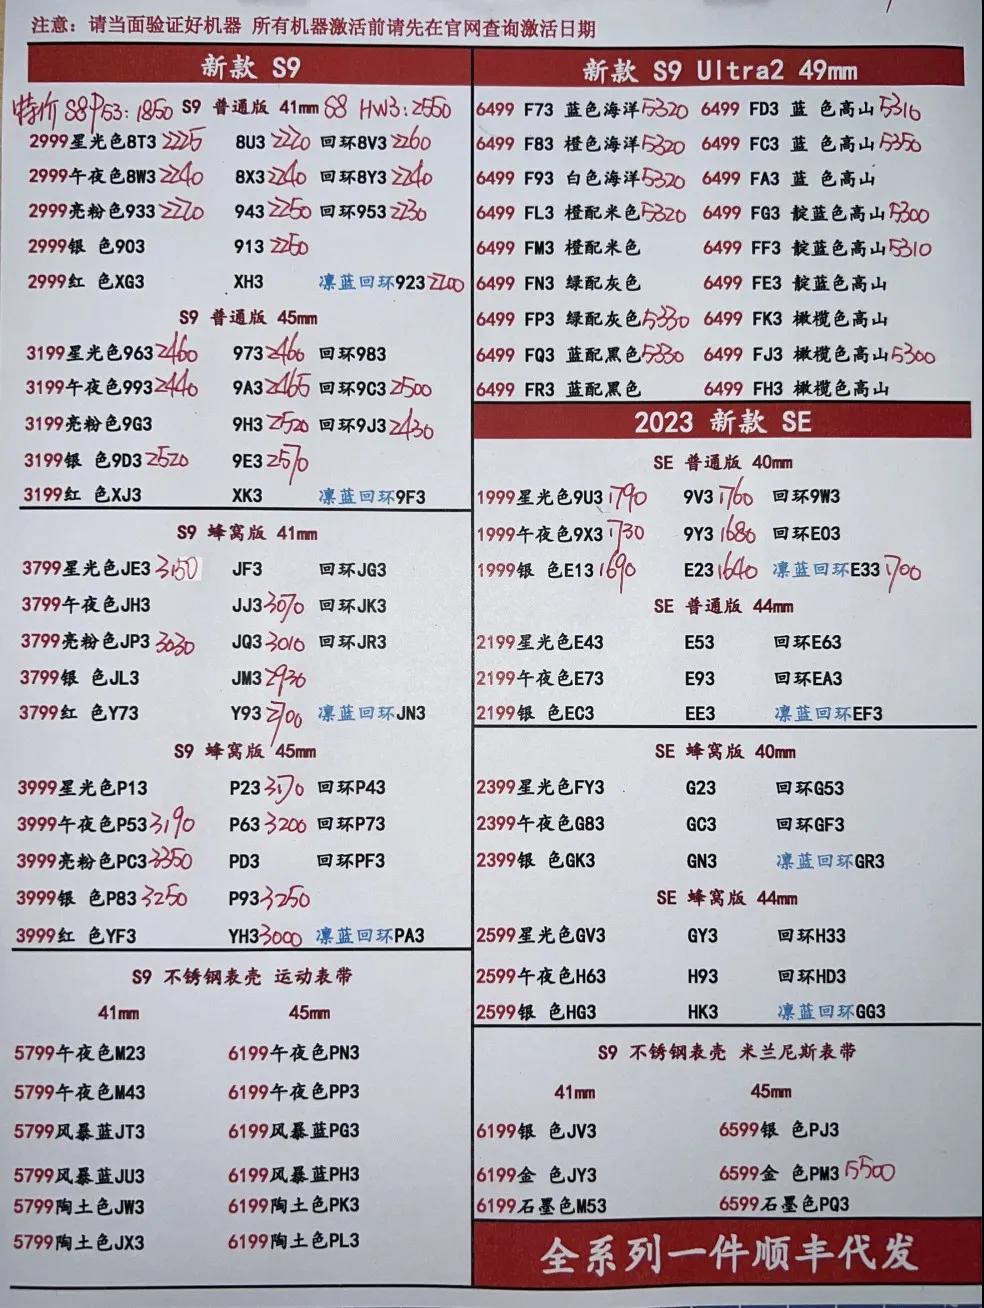 注意：请当面验证好机器 所有机器激活前请先在官网查询激活日期
新款 S9
特价 S8 P53:1850 S9 普通版 41mm S8 HW3:2550
2999星光色8T3 2225 8U3 2220 回环8V3 2260
2999午夜色8W3 2240 8X3 2240 回环8Y3 2240
2999亮粉色933 2220 943 2250 回环953 2230
2999银 色903 913 2250
2999红 色XG3 XH3 凛蓝回环923 2200
S9 普通版 45mm
3199星光色963 2460 973 2460 回环983
3199午夜色993 2440 9A3 2465 回环9C3 2500
3199亮粉色9G3 9H3 2520 回环9J3 2430
3199银 色9D3 2520 9E3 2570
3199红 色XJ3 XK3 凛蓝回环9F3
S9 蜂窝版 41mm
3799星光色JE3 3150 JF3 回环JG3
3799午夜色JH3 JJ3 3070 回环JK3
3799亮粉色JP3 3030 JQ3 3010 回环JR3
3799银 色JL3 JM3 2930
3799红 色Y73 Y93 2700 凛蓝回环JN3
S9 蜂窝版 45mm
3999星光色P13 P23 3170 回环P43
3999午夜色P53 3190 P63 3200 回环P73
3999亮粉色PC3 3350 PD3 回环PF3
3999银 色P83 3250 P93 3250
3999红 色YF3 YH3 3000 凛蓝回环PA3
S9 不锈钢表壳 运动表带
41mm 45mm
5799午夜色M23 6199午夜色PN3
5799午夜色M43 6199午夜色PP3
5799风暴蓝JT3 6199风暴蓝PG3
5799风暴蓝JU3 6199风暴蓝PH3
5799陶土色JW3 6199陶土色PK3
5799陶土色JX3 6199陶土色PL3
新款 S9 Ultra2 49mm
6499 F73 蓝色海洋 5320 6499 FD3 蓝 色高山 5310
6499 F83 橙色海洋 5320 6499 FC3 蓝 色高山 5350
6499 F93 白色海洋 5320 6499 FA3 蓝 色高山
6499 FL3 橙配米色 5320 6499 FG3 靛蓝色高山 5300
6499 FM3 橙配米色 6499 FF3 靛蓝色高山 5310
6499 FN3 绿配灰色 6499 FE3 靛蓝色高山
6499 FP3 绿配灰色 5330 6499 FK3 橄榄色高山
6499 FQ3 蓝配黑色 5330 6499 FJ3 橄榄色高山 5300
6499 FR3 蓝配黑色 6499 FH3 橄榄色高山
2023 新款 SE
SE 普通版 40mm
1999星光色9U3 1790 9V3 1760 回环9W3
1999午夜色9X3 1730 9Y3 1680 回环E03
1999银 色E13 1690 E23 1640 凛蓝回环E33 1700
SE 普通版 44mm
2199星光色E43 E53 回环E63
2199午夜色E73 E93 回环EA3
2199银 色EC3 EE3 凛蓝回环EF3
SE 蜂窝版 40mm
2399星光色FY3 G23 回环G53
2399午夜色G83 GC3 回环GF3
2399银 色GK3 GN3 凛蓝回环GR3
SE 蜂窝版 44mm
2599星光色GV3 GY3 回环H33
2599午夜色H63 H93 回环HD3
2599银 色HG3 HK3 凛蓝回环GG3
S9 不锈钢表壳 米兰尼斯表带
41mm 45mm
6199银 色JV3 6599银 色PJ3
6199金 色JY3 6599金 色PM3 5500
6199石墨色M53 6599石墨色PQ3
全系列一件顺丰代发